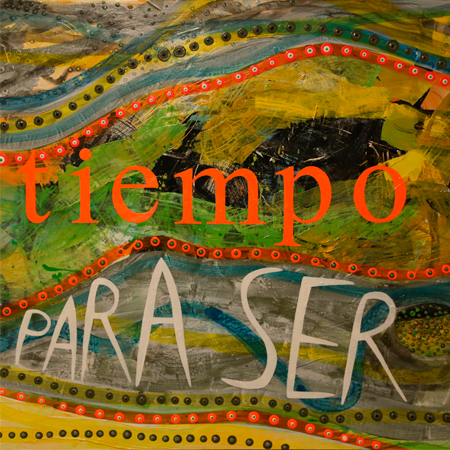 tiempo
PARA SER